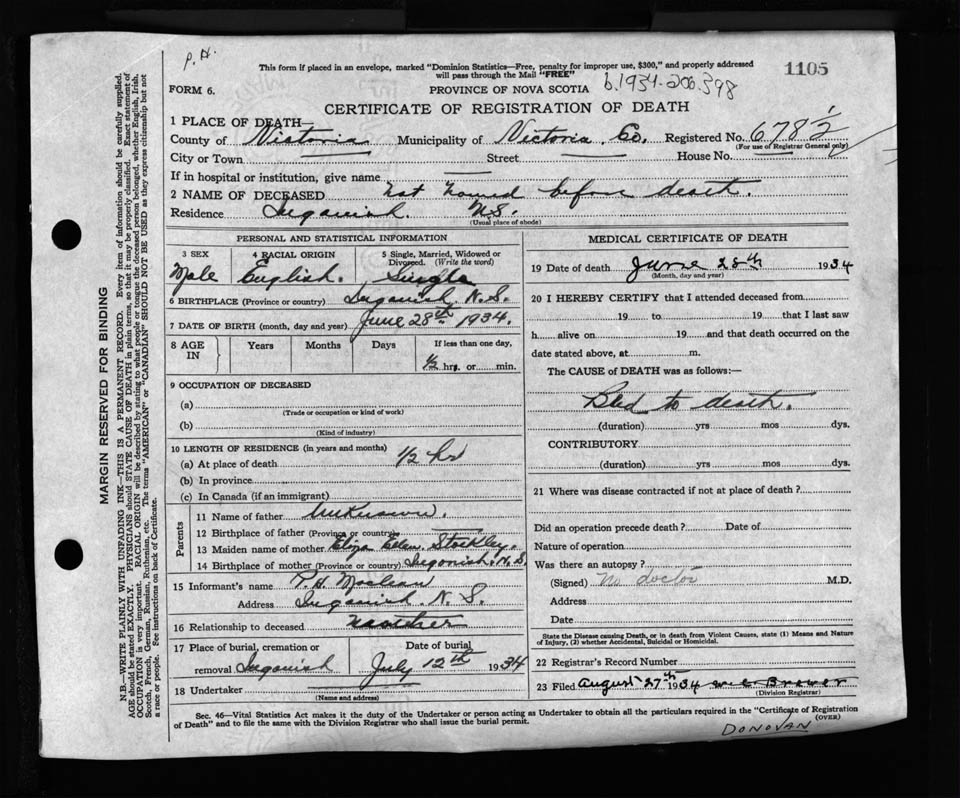 P. H.
This form if placed in an envelope, marked "Dominion Statistics—Free, penalty for improper use, $300," and properly addressed
will pass through the Mail "FREE"
1105
FORM 6.
PROVINCE OF NOVA SCOTIA
b.1934-206398
CERTIFICATE OF REGISTRATION OF DEATH
1 PLACE OF DEATH—
County of Victoria Municipality of Victoria Co. Registered No. 678½
(For use of Registrar General only)
City or Town Street House No.
If in hospital or institution, give name
2 NAME OF DECEASED not named before death.
Residence Ingonish. N.S.
(Usual place of abode)
PERSONAL AND STATISTICAL INFORMATION
3 SEX 4 RACIAL ORIGIN 5 Single, Married, Widowed or
Divorced. (Write the word)
Male English. Single
6 BIRTHPLACE (Province or country) Ingonish N.S.
7 DATE OF BIRTH (month, day and year) June 28th 1934.
8 AGE IN Years Months Days If less than one day,
½ hrs. or min.
9 OCCUPATION OF DECEASED
(a)
(Trade or occupation or kind of work)
(b)
(Kind of industry)
10 LENGTH OF RESIDENCE (in years and months)
(a) At place of death 1/2 hr
(b) In province
(c) In Canada (if an immigrant)
Parents
11 Name of father Unknown.
12 Birthplace of father (Province or country)
13 Maiden name of mother Eliza Ellen Stockley.
14 Birthplace of mother (Province or country) Ingonish. N.S.
15 Informant's name P. H. Maclean
Address Ingonish N. S.
16 Relationship to deceased
17 Place of burial, cremation or Date of burial
removal Ingonish July 12th 1934
18 Undertaker
(Name and address)
MEDICAL CERTIFICATE OF DEATH
19 Date of death June 28th 1934
(Month, day and year)
20 I HEREBY CERTIFY that I attended deceased from
19 to 19 that I last saw
h alive on 19 and that death occurred on the
date stated above, at m.
The CAUSE of DEATH was as follows:—
Bled to death.
(duration) yrs mos dys.
CONTRIBUTORY
(duration) yrs mos dys.
21 Where was disease contracted if not at place of death?
Did an operation precede death? Date of
Nature of operation
Was there an autopsy?
(Signed) No doctor M.D.
Address
Date
State the Disease causing Death, or in death from Violent Causes, state (1) Means and Nature
of Injury, (2) whether Accidental, Suicidal or Homicidal.
22 Registrar's Record Number
23 Filed August 27th 1934 Brewer
(Division Registrar)
Sec. 46—Vital Statistics Act makes it the duty of the Undertaker or person acting as Undertaker to obtain all the particulars required in the "Certificate of Registration
of Death" and to file the same with the Division Registrar who shall issue the burial permit.
(OVER)
DONOVAN
MARGIN RESERVED FOR BINDING
N.B.—WRITE PLAINLY WITH UNFADING INK—THIS IS A PERMANENT RECORD. Every item of information should be carefully supplied.
AGE should be stated EXACTLY. PHYSICIANS should STATE CAUSE OF DEATH in plain terms, so that it may be properly classified. Exact statement of
OCCUPATION is very important. RACIAL ORIGIN will be described by stating to what people or tongue the deceased person belonged, whether English, Irish,
Scotch, French, German, Russian, Ruthenian, etc. The terms "AMERICAN" or "CANADIAN" SHOULD NOT BE USED as they express citizenship but not
a race or people. See instructions on back of Certificate.